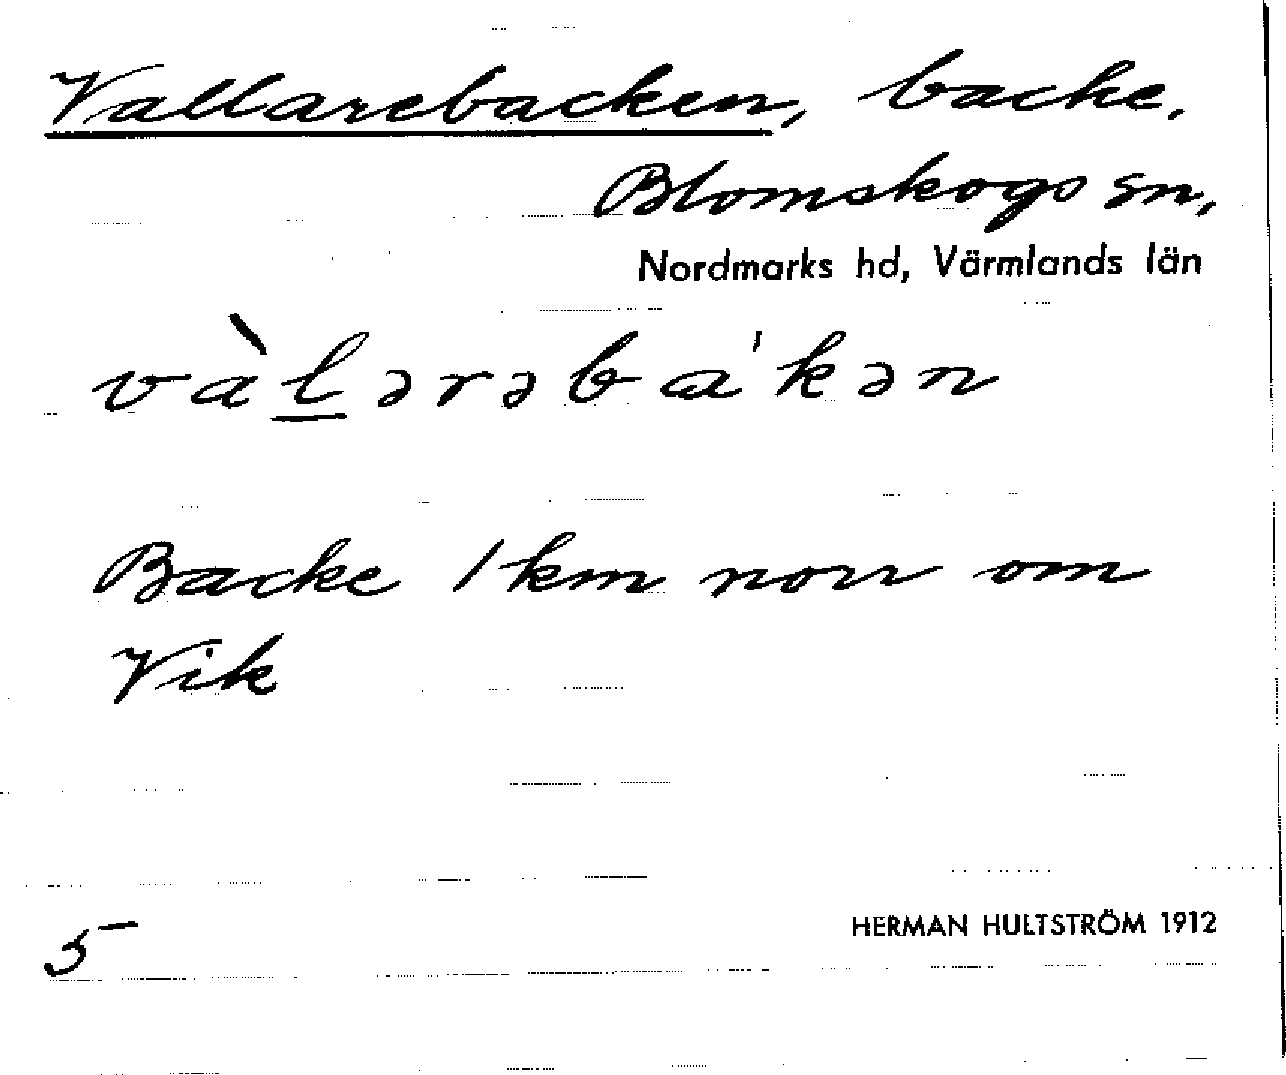 Vallarebacken, backe,
Blomskogs sn,
Nordmarks hd, Värmlands län
vàl̲ərəba'kən
Backe 1 km norr om
Vik
5
HERMAN HULTSTRÖM 1912